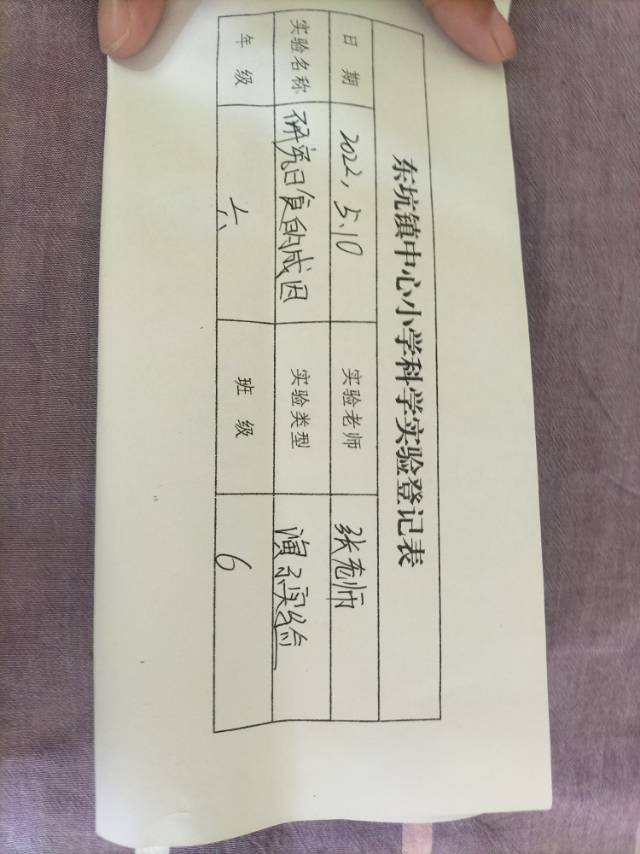 东坑镇中心小学科学实验登记表
日 期 2022.5.10 实验老师 张老师
实验名称 研究日食的成因 实验类型 演示实验
年 级 六 班 级 6